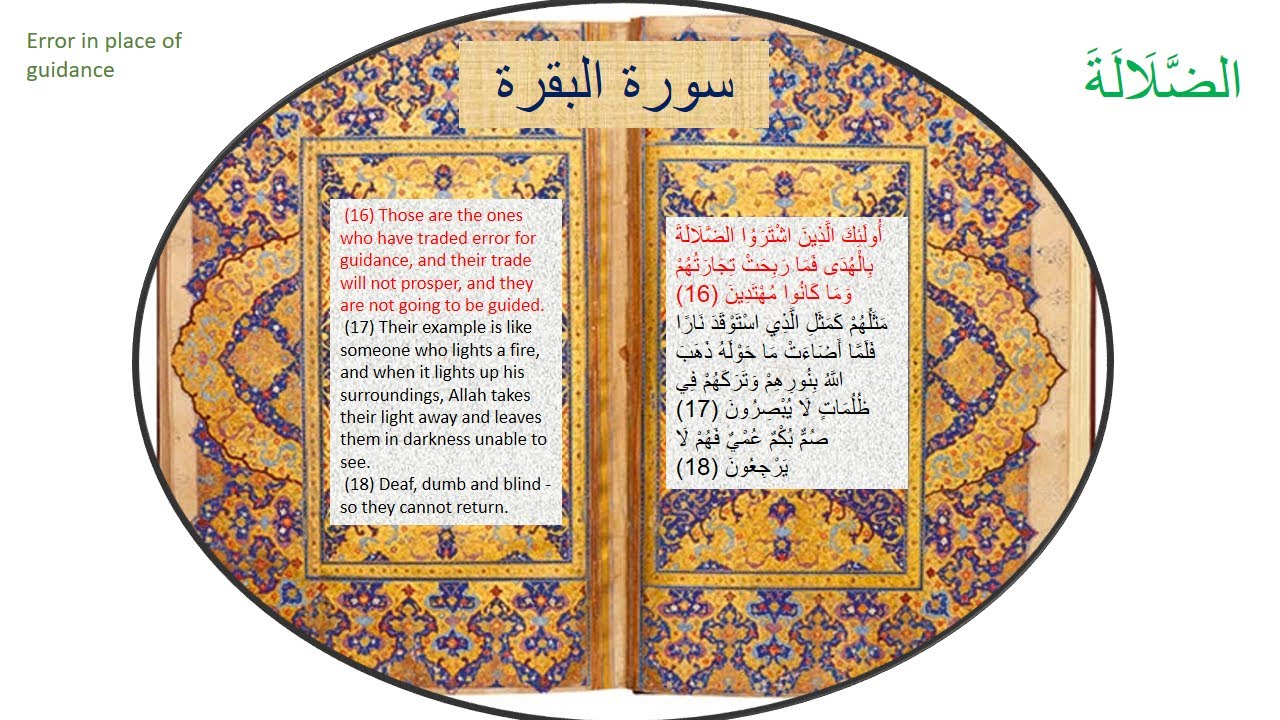 Error in place of
guidance
سورة البقرة
الضَّلَالَةَ
(16) Those are the ones
who have traded error for
guidance, and their trade
will not prosper, and they
are not going to be guided.
(17) Their example is like
someone who lights a fire,
and when it lights up his
surroundings, Allah takes
their light away and leaves
them in darkness unable to
see.
(18) Deaf, dumb and blind -
so they cannot return.
أُولَئِكَ الَّذِينَ اشْتَرَوُا الضَّلَالَةَ
بِالْهُدَى فَمَا رَبِحَتْ تِجَارَتُهُمْ
وَمَا كَانُوا مُهْتَدِينَ (16)
مَثَلُهُمْ كَمَثَلِ الَّذِي اسْتَوْقَدَ نَارًا
فَلَمَّا أَضَاءَتْ مَا حَوْلَهُ ذَهَبَ
اللَّهُ بِنُورِهِمْ وَتَرَكَهُمْ فِي
ظُلُمَاتٍ لَا يُبْصِرُونَ (17)
صُمٌّ بُكْمٌ عُمْيٌ فَهُمْ لَا
يَرْجِعُونَ (18)